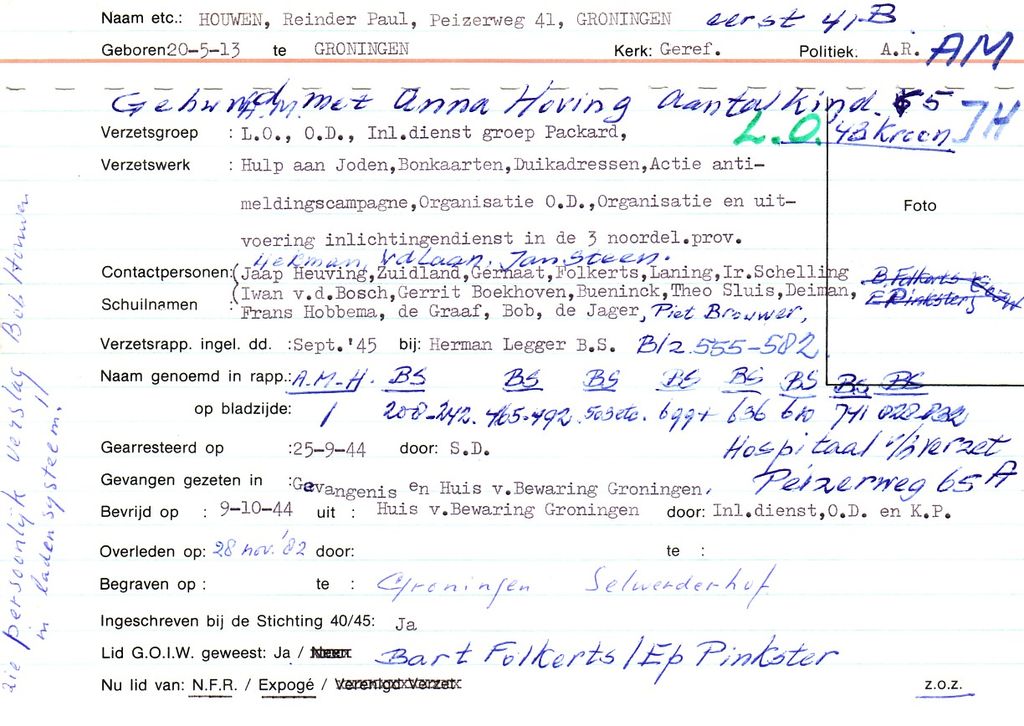 Naam etc.: HOUWEN, Reinder Paul, Peizerweg 41, GRONINGEN eerst 41-B
Geboren20-5-13 te GRONINGEN Kerk: Geref. Politiek: A.R. AM
Gehuwd met Anna Hoving Aantal Kind. 5 JH
Verzetsgroep : L.O., O.D., Inl.dienst groep Packard, L.O. 43 Kroon
Verzetswerk : Hulp aan Joden,Bonkaarten,Duikadressen,Actie anti-
meldingscampagne,Organisatie O.D.,Organisatie en uit- Foto
voering inlichtingendienst in de 3 noordel.prov.
Hekman, vdLaan. Jan Steen.
Contactpersonen:(Jaap Heuving,Zuidland,Gernaat,Folkerts,Laning,Ir.Schelling B. Folkerts
(Iwan v.d.Bosch,Gerrit Boekhoven,Bueninck,Theo Sluis,Deiman, E Pinkster
Schuilnamen Frans Hobbema, de Graaf, Bob, de Jager, Piet Brouwer,
Verzetsrapp. ingel. dd. :Sept.'45 bij: Herman Legger B.S. Blz. 555-582
Naam genoemd in rapp.: A.M-H. BS BS BS BS BS BS BS BS
op bladzijde: 1 208-242. 465-492. 503etc. 699+ 636 610 741
Gearresteerd op :25-9-44 door: S.D. Hospitaal v/h verzet
Gevangen gezeten in :Gevangenis en Huis v.Bewaring Groningen. Peizerweg 65A
Bevrijd op : 9-10-44 uit : Huis v.Bewaring Groningen door: Inl.dienst,O.D. en K.P.
Overleden op: 28 nov. '82 door: te :
Begraven op : te : Groningen Selwerderhof
Ingeschreven bij de Stichting 40/45: Ja
Lid G.O.I.W. geweest: Ja / Neen Bart Folkerts/Ep Pinkster
Nu lid van: N.F.R. / Expogé / Verenigd Verzet z.o.z.
zie persoonlijk verslag Bob Houwen
in ladensysteem!!